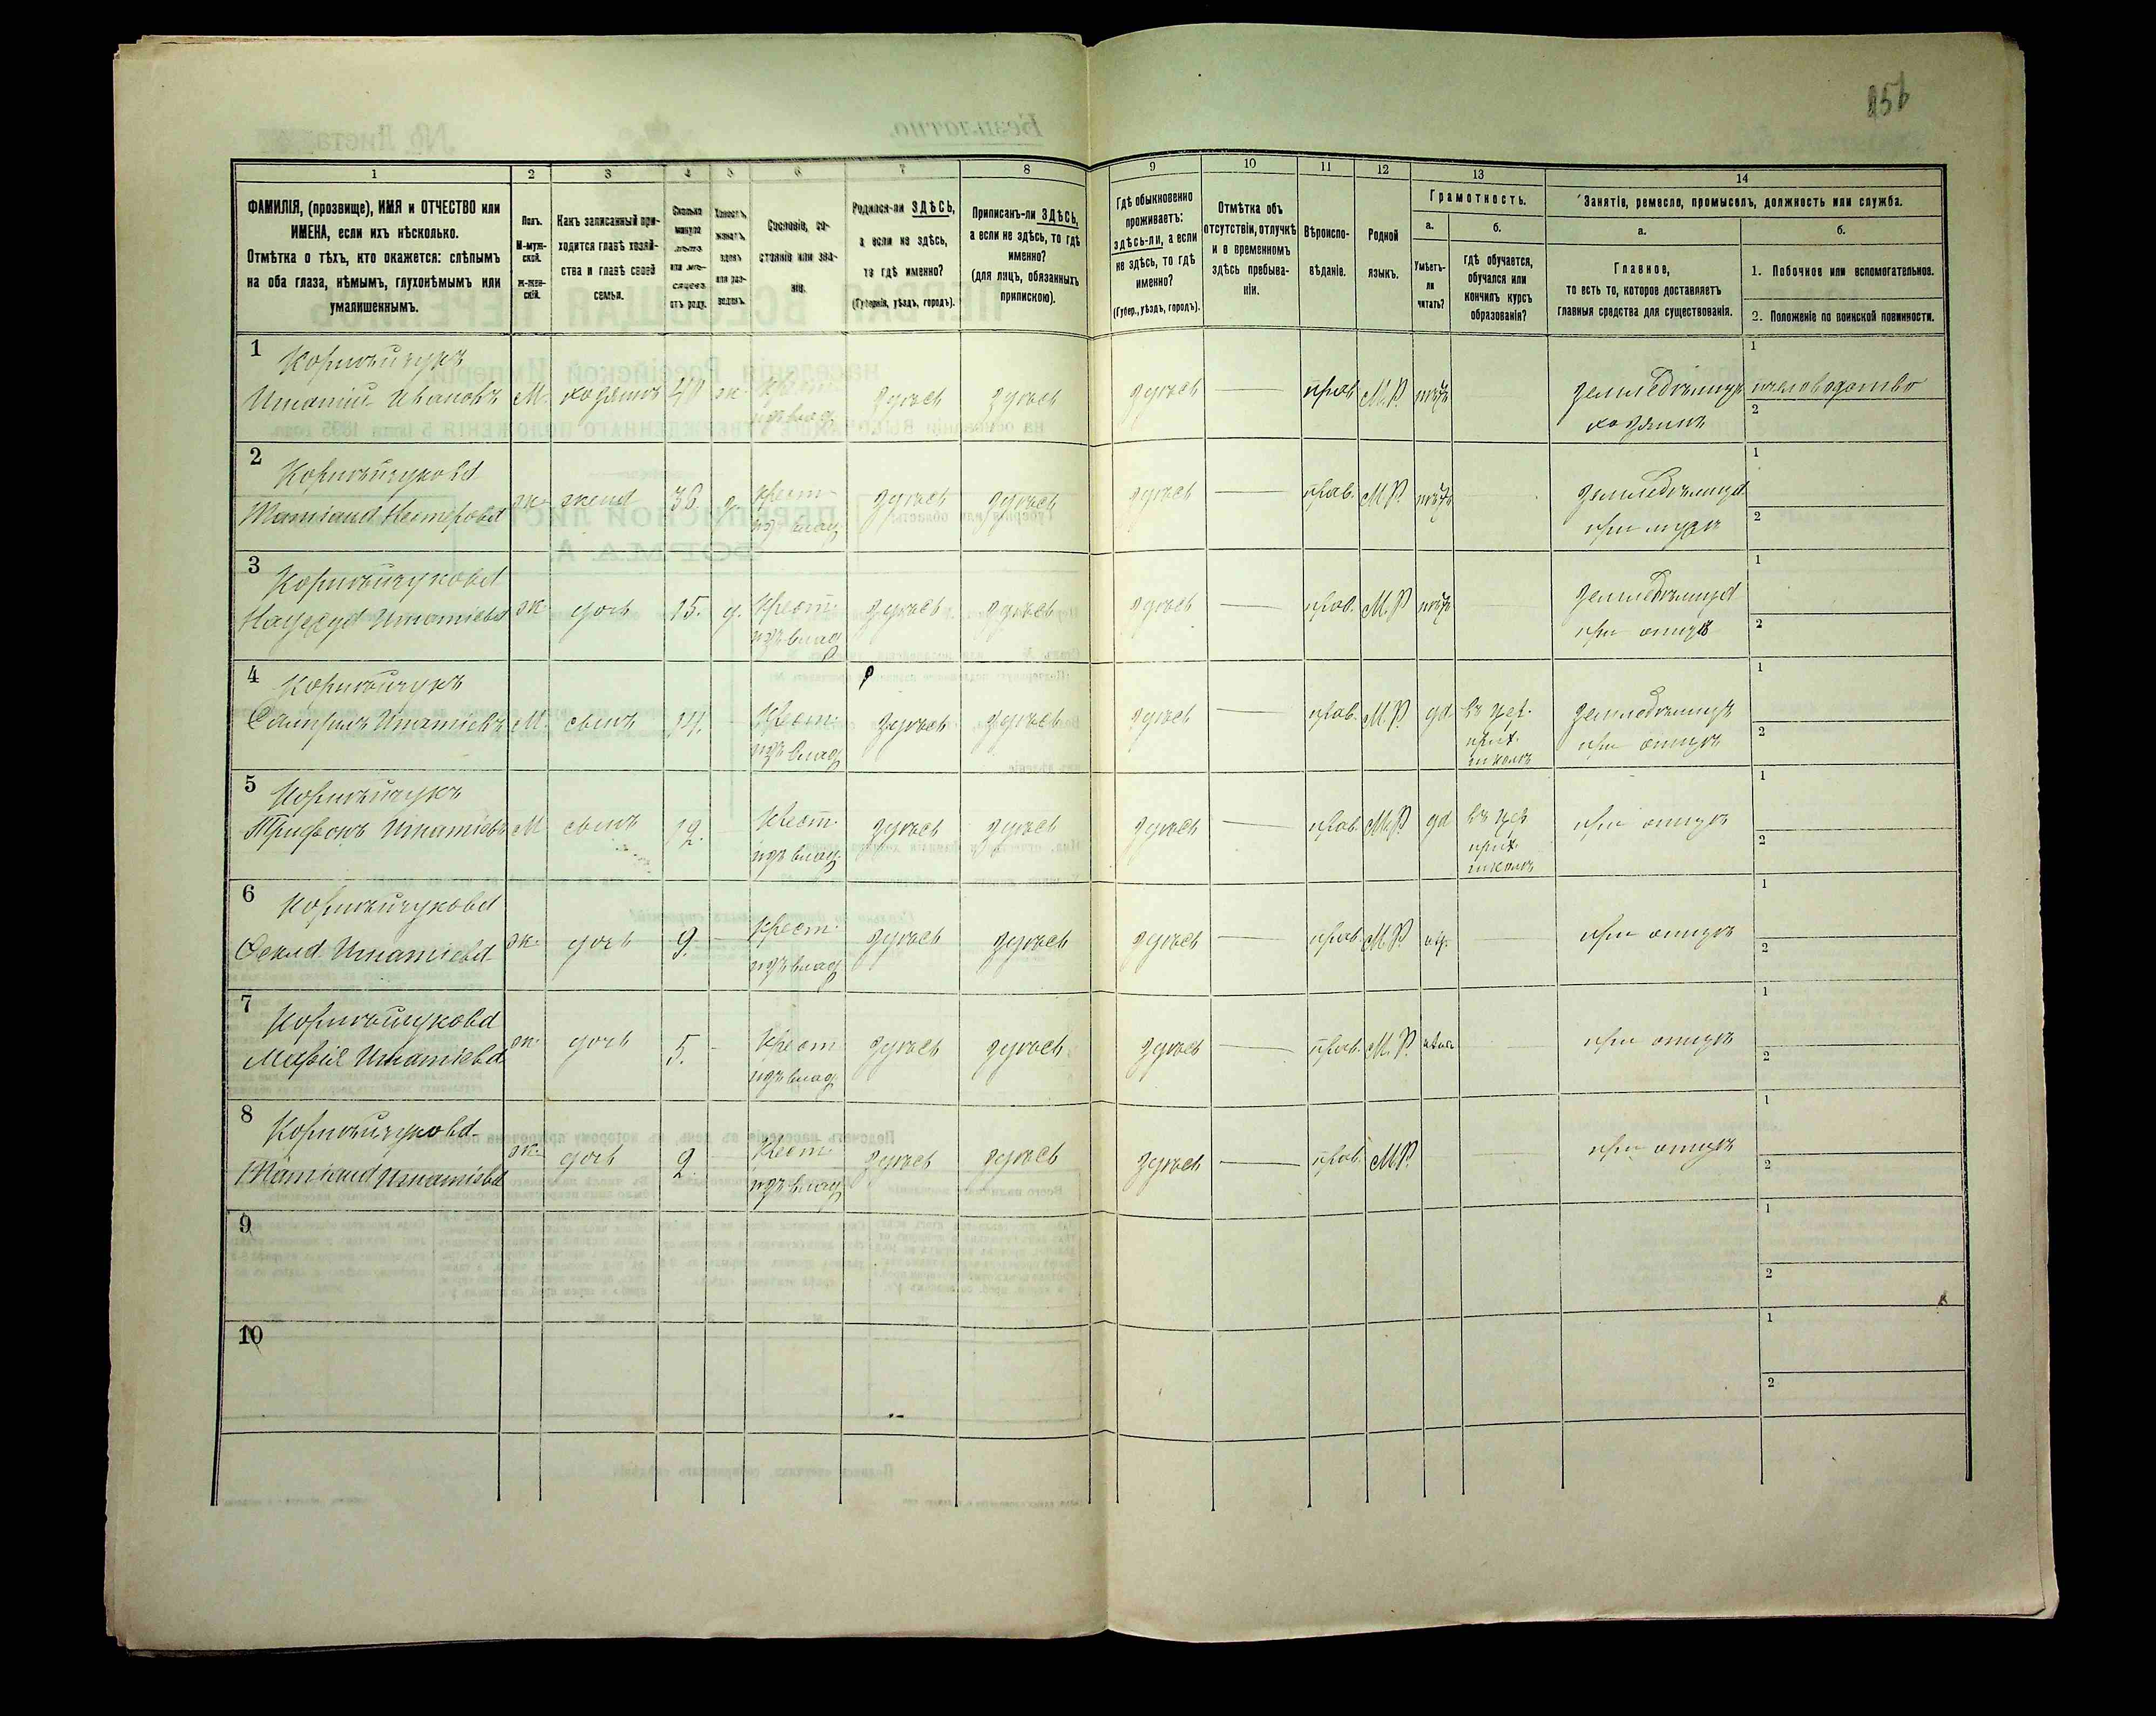 256
1
2
3
4
5
6
7
8
9
10
11
12
13
14
ФАМИЛІЯ, (прозвище), ИМЯ и ОТЧЕСТВО или
ИМЕНА, если ихъ нѣсколько.
Отмѣтка о тѣхъ, кто окажется: слѣпымъ
на оба глаза, нѣмымъ, глухонѣмымъ или
умалишеннымъ.
Полъ.
М-муж-
ской.
ж-жен-
скій.
Какъ записанный при-
ходится главѣ хозяй-
ства и главѣ своей
семьи.
Сколько
минуло
лѣтъ
или мѣ-
сяцевъ
отъ роду.
Холостъ,
женатъ,
вдовъ
или раз-
веденъ.
Сословіе, со-
стояніе или зва-
ніе.
Родился-ли ЗДѢСЬ,
а если не здѣсь,
то гдѣ именно?
(Губернія, уѣздъ, городъ).
Приписанъ-ли ЗДѢСЬ,
а если не здѣсь, то гдѣ
именно?
(для лицъ, обязанныхъ
припискою).
Гдѣ обыкновенно
проживаетъ:
здѣсь-ли, а если
не здѣсь, то гдѣ
именно?
(Губер., уѣздъ, городъ).
Отмѣтка объ
отсутствіи, отлучкѣ
и о временномъ
здѣсь пребыва-
ніи.
Вѣроиспо-
вѣданіе.
Родной
языкъ.
Грамотность.
а.
Умѣетъ-
ли
читать?
б.
гдѣ обучается,
обучался или
кончилъ курсъ
образованія?
Занятіе, ремесло, промыселъ, должность или служба.
а.
Главное,
то есть то, которое доставляетъ
главныя средства для существованія.
б.
1. Побочное или вспомогательное.
2. Положеніе по воинской повинности.
1 Корнѣйчукъ
Игнатій Ивановъ М. хозяинъ 40 ж. Крест. здѣсь здѣсь здѣсь — прав. М.Р. нѣтъ земледѣлецъ 1 пчеловодство
изъ влад. хозяинъ 2
2 Корнѣйчукова
Татіана Нестерова ж. жена 38 з. крест. здѣсь здѣсь здѣсь — прав. М.Р. нѣтъ земледѣлица 1
изъ влад. при мужѣ 2
3 Корнѣйчукова
Надежда Игнатіева ж. дочь 15. д. Крест. здѣсь здѣсь здѣсь — прав. М.Р. нѣтъ земледѣлица 1
изъ влад. при отцѣ 2
4 Корнѣйчукъ
Самуилъ Игнатіевъ М. сынъ 14. Крест. здѣсь здѣсь здѣсь — прав. М.Р. да въ цер. земледѣлецъ 1
изъ влад. прих. при отцѣ 2
школѣ
5 Корнѣйчукъ
Трифонъ Игнатіевъ М сынъ 12. Крест. здѣсь здѣсь здѣсь — прав. М.Р. да въ цер. при отцѣ 1
изъ влад. прих. 2
школѣ
6 Корнѣйчукова
Фекла Игнатіева ж. дочь 9. — Крест. здѣсь здѣсь здѣсь — прав. М.Р. — при отцѣ 1
изъ влад. 2
7 Корнѣйчукова
Марія Игнатіева ж. дочь 5. — Крест здѣсь здѣсь здѣсь — прав. М.Р. — при отцѣ 1
изъ влад. 2
8 Корнѣйчукова
Татіана Игнатіева ж. дочь 2 — Крест. здѣсь здѣсь здѣсь — прав. М.Р. — при отцѣ 1
изъ влад. 2
9 1
2
10 1
2